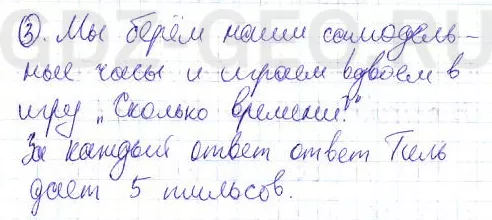 GDZ-GEO.RU
③. Мы берём наши самодель-
ные часы и играем вдвоем в
игру „Сколько времени?"
За каждый ответ ответ Тиль
дает 5 тильсов.